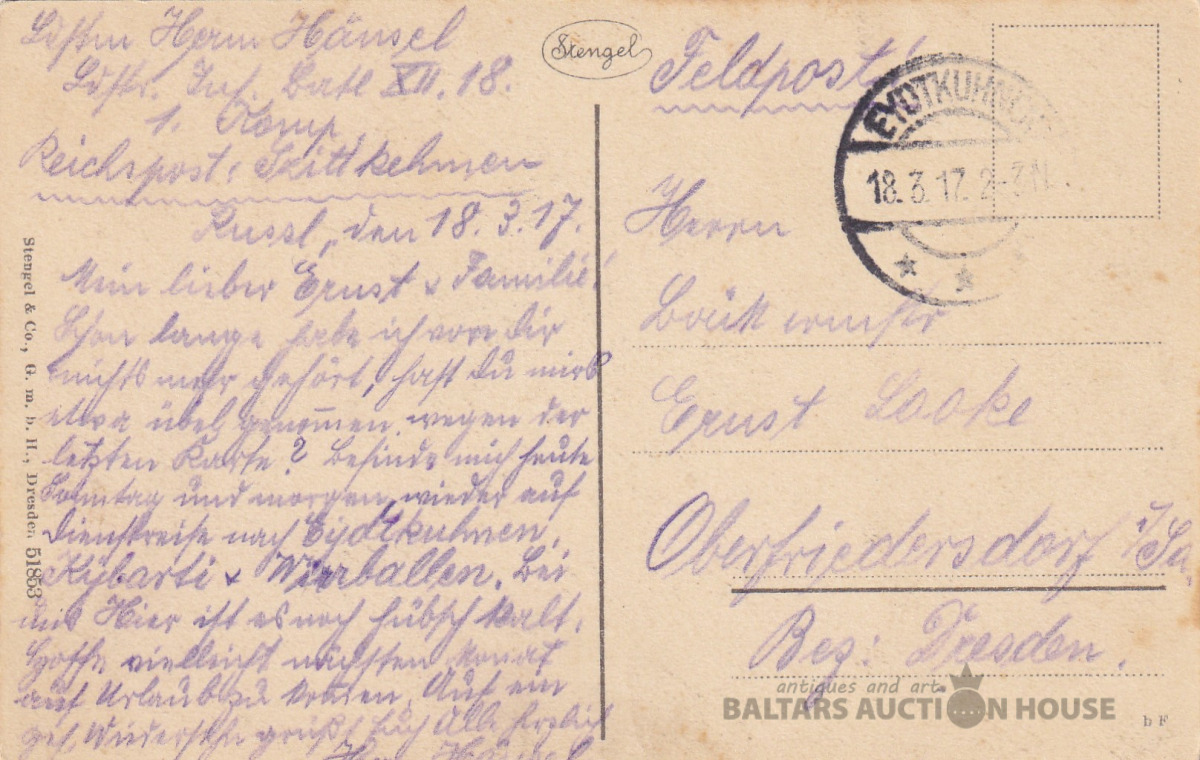 Ldstm Herm Hänsel
Ldstr. Inf. Batl XII. 18.
1. Komp.
Reichspost: Szittkehmen
Russl, den 18. 3. 17.
Mein lieber Ernst u Familie!
Schon lange habe ich von dir
nichts mehr gehört, hast du mirs
etwa übel genommen wegen der
letzten Karte? Befinde mich heute
Sonntag und morgen wieder auf
Dienstreise nach Eydtkuhnen,
Kybarti u Wirballen. Bei
uns Hier ist es noch hübsch kalt.
Hoffe vielleicht nächsten Monat
auf Urlaub zu kommen. Auf ein
Wiedersehn grüßt Euch Alle herzlich
Hänsel
Stengel & Co., G. m. b. H., Dresden 51853
Stengel
Feldpost!
EYDTKUHNEN
18. 3. 17. 2-3 N.
Herrn
Ernst
Oberfriedersdorf i/Sa.
Bez: Dresden.
antiques and art
BALTARS AUCTION HOUSE
b F